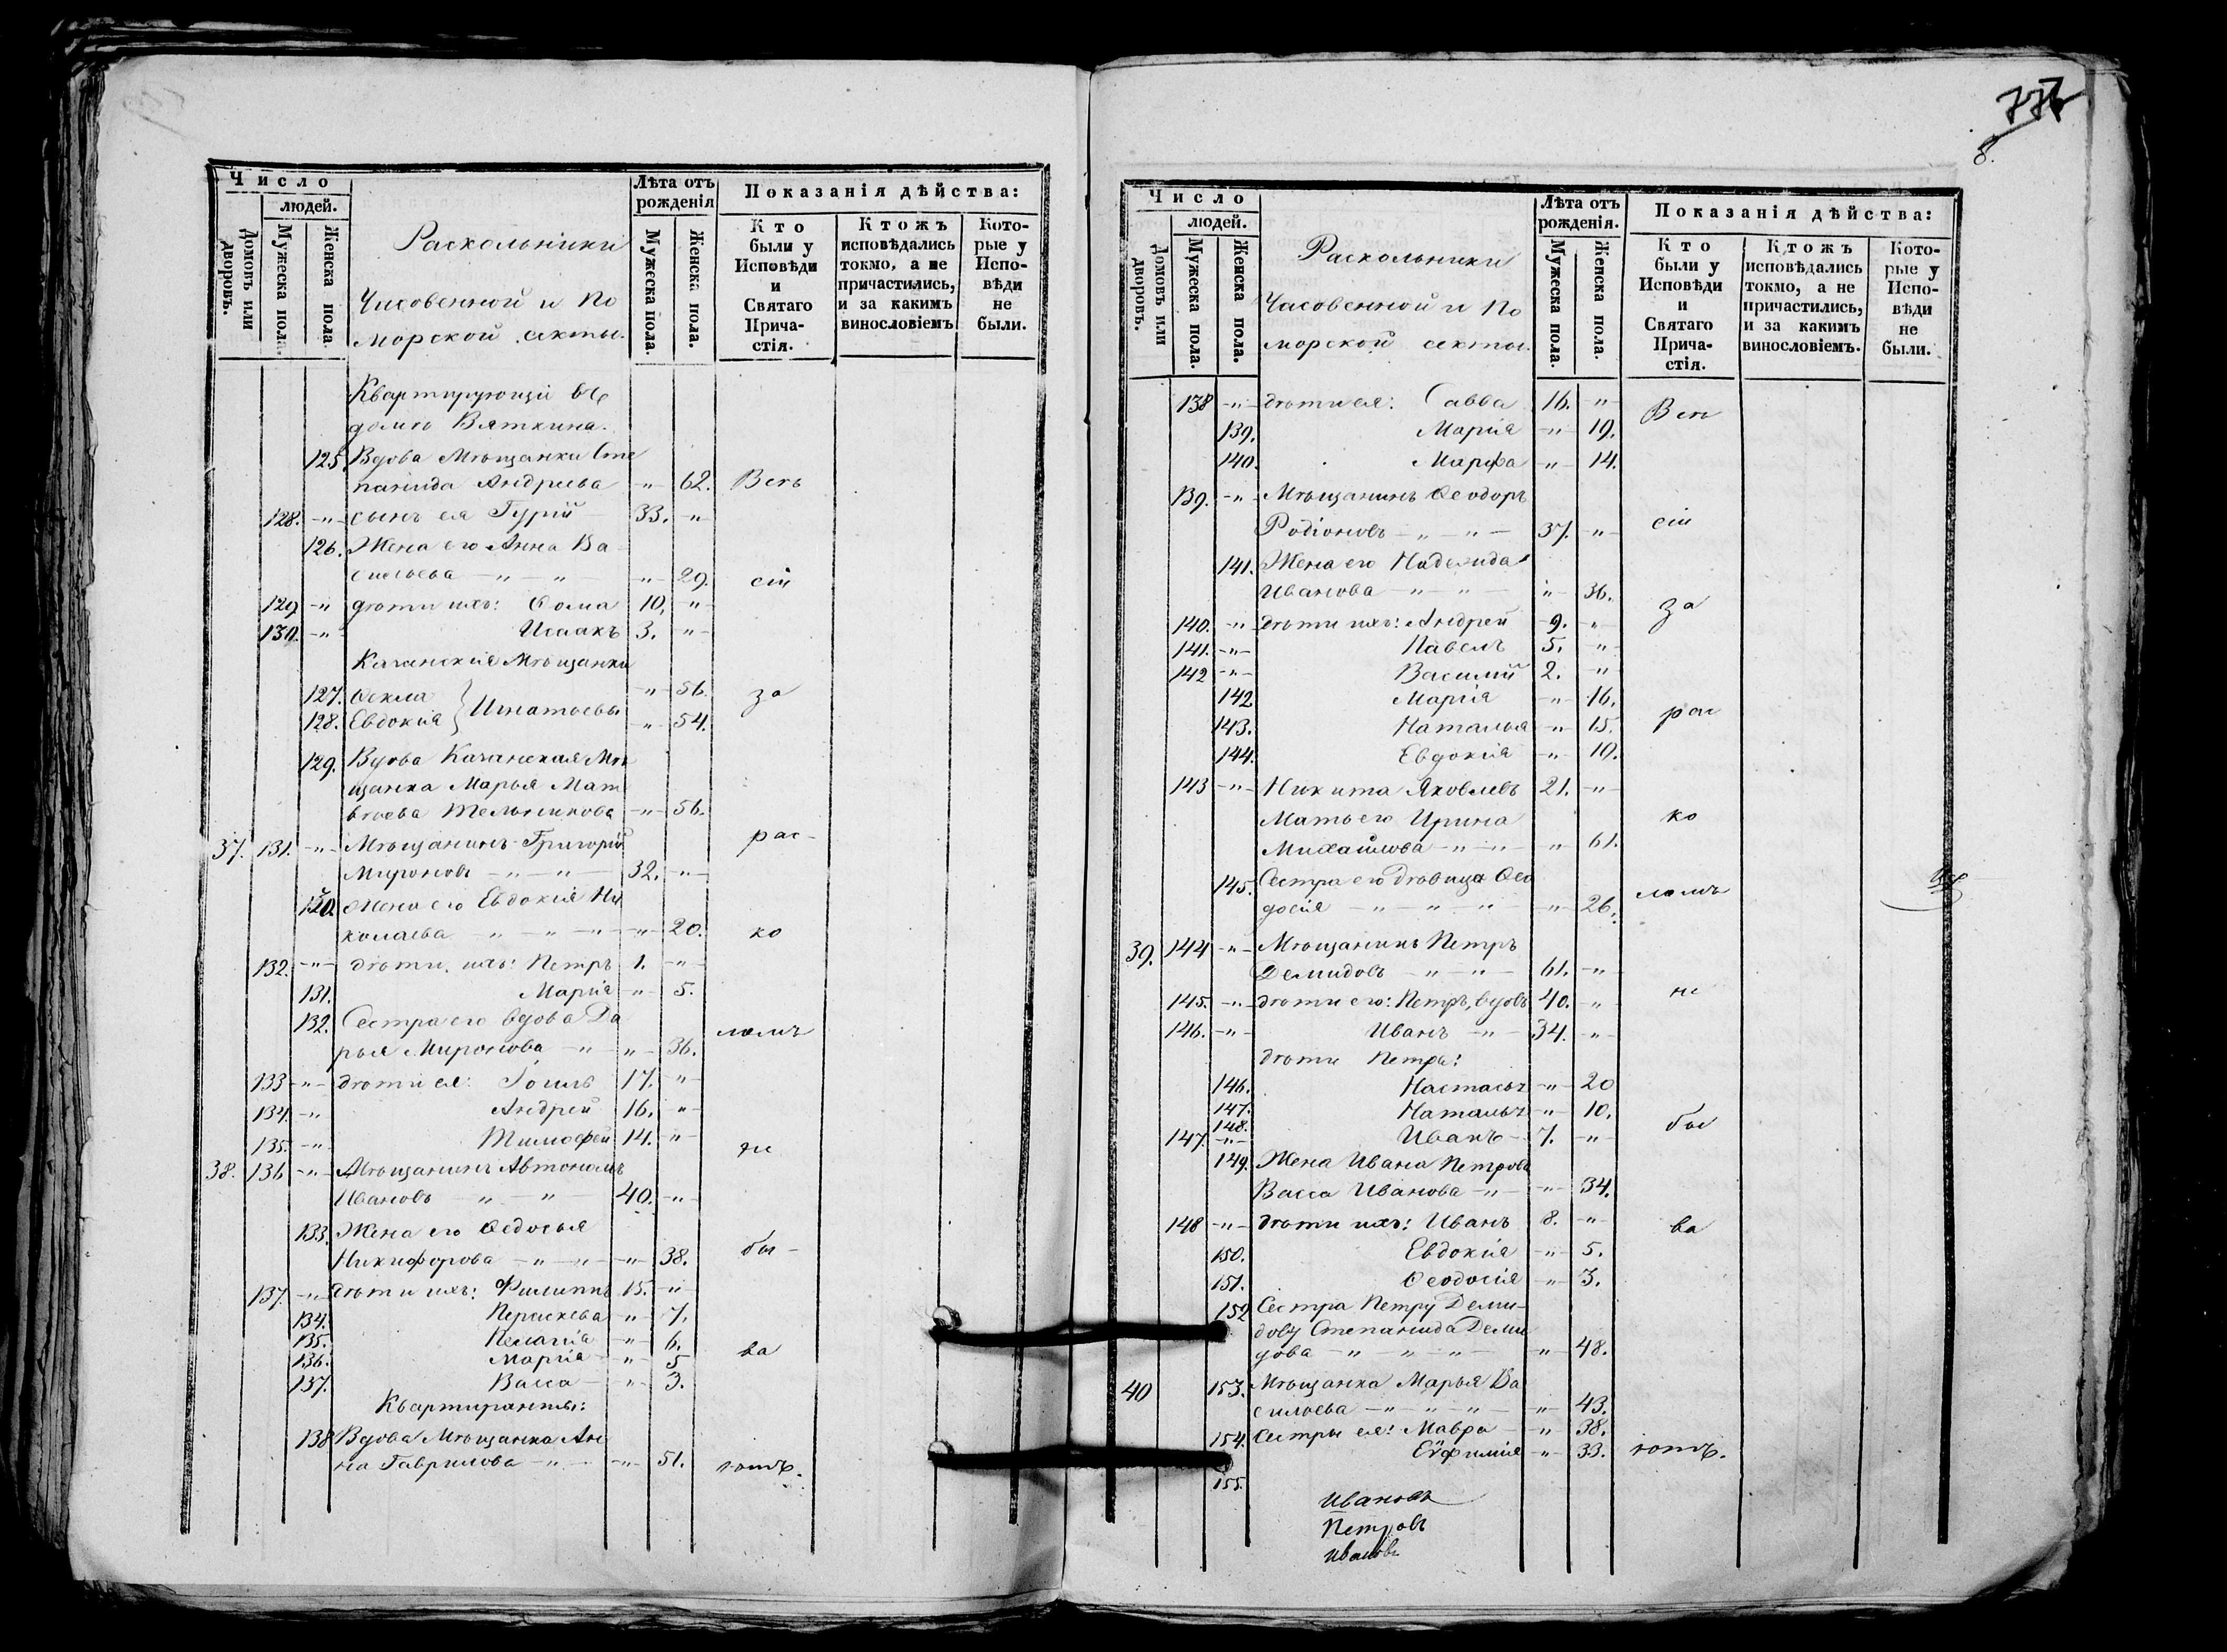 Число
людей.
Домовъ или дворовъ.
Мужеска пола.
Женска пола.
Раскольники
Часовенной и По
морской секты.
Лѣта отъ
рожденія
Мужеска пола.
Женска пола.
Показанія дѣйства:
Кто
были у
Исповѣди
и
Святаго
Прича-
стія.
Ктожъ
исповѣдались
токмо, а не
причастились,
и за какимъ
винословіемъ.
Кото-
рые у
Испо-
вѣди
не
были.
Квартирующіи въ
домѣ Вяткина.
125. Вдова Мѣщанки Сте
панида Андреева -"- 62. Всѣ
128. -"- сынъ ея Гурій 33. -"-
126. Жена его Анна Ва
сильева -"- -"- -"- 29. сіи
129 -"- дѣти ихъ: Ѳома 10. -"-
130. -"- Исаакъ 3. -"-
Мѣщанки
127. Ѳекла -"- 56. за
128. Евдокія } Игнатьевы -"- 54.
129. Вдова Мѣ
щанка Марья Мат
вѣева Мельникова -"- 56.
37. 131. -"- Мѣщанинъ Григорій рас-
Мироновъ -"- -"- 32. -"-
130. Жена его Евдокія Ни
колаева -"- -"- -"- -"- 20. ко
132. -"- дѣти ихъ: Петръ 1. -"-
131. Марія -"- 5.
132. Сестра его вдова Да
рья Миронова -"- -"- 36. ломъ
133 -"- дѣти ея: 17. -"-
134. -"- Андрей 16. -"-
135. -"- Тимофей 14. -"- не
38. 136 -"- Мѣщанинъ Автономъ
Ивановъ -"- -"- 40. -"-
133. Жена его Ѳедосья
Никифорова -"- -"- -"- 38. бы-
137. -"- дѣти ихъ: Филиппъ 15. -"-
134. Параскева -"- 7.
135. Пелагія -"- 6.
136. Марія -"- 5 ва
137. Васса -"- 3.
Квартиранты:
138 Вдова Мѣщанка Ан
на Гаврилова -"- -"- 51. ютъ.
776
8.
Число
людей.
Домовъ или дворовъ.
Мужеска пола.
Женска пола.
Раскольники
Часовенной и По
морской секты.
Лѣта отъ
рожденія.
Мужеска пола.
Женска пола.
Показанія дѣйства:
Кто
были у
Исповѣди
и
Святаго
Прича-
стія.
Ктожъ
исповѣдались
токмо, а не
причастились,
и за какимъ
винословіемъ.
Кото-
рые у
Испо-
вѣди
не
были.
138 -"- дѣти ея: Савва 16. -"- Всѣ
139. Марія -"- 19.
140. Марфа -"- 14.
139. -"- Мѣщанинъ Ѳеодоръ
Родіоновъ -"- -"- 37. -"- сіи
141. Жена его Надежда
Иванова -"- -"- -"- 36.
140. -"- дѣти ихъ: Андрей 9. -"- за
141. -"- Павелъ 5. -"-
142 -"- Василій 2. -"-
142 Марія -"- 16.
143. Наталья -"- 15. рас
144. Евдокія -"- 10.
143 -"- Никита Яковлевъ 21. -"-
Мать его Ирина ко
Михайлова -"- -"- -"- 61.
145. Сестра его дѣвица Ѳео
досія -"- -"- -"- -"- 26. ломъ
39. 144 -"- Мѣщанинъ Петръ
Демидовъ -"- -"- 61. -"-
145. -"- дѣти его: Петръ, вдовъ 40. -"- не
146. -"- Иванъ -"- 34. -"-
дѣти Петра:
146. Настасья -"- 20
147. Наталья -"- 10.
148.
147. -"- Иванъ 7. -"- бы
149. Жена Ивана Петрова
Васса Иванова -"- -"- 34.
148 -"- дѣти ихъ: Иванъ 8. -"- ва
150. Евдокія -"- 5.
151. Ѳеодосія -"- 3.
152 Сестра Петру Деми-
дову Степанида Деми
дова -"- -"- -"- -"- 48.
40 153. Мѣщанка Марья Ва
сильева -"- -"- -"- -"- 43.
154. Сестры ея: Мавра -"- 38.
Евфимія -"- 33. ютъ.
155.
Ивановъ
Петровъ
Ивановъ